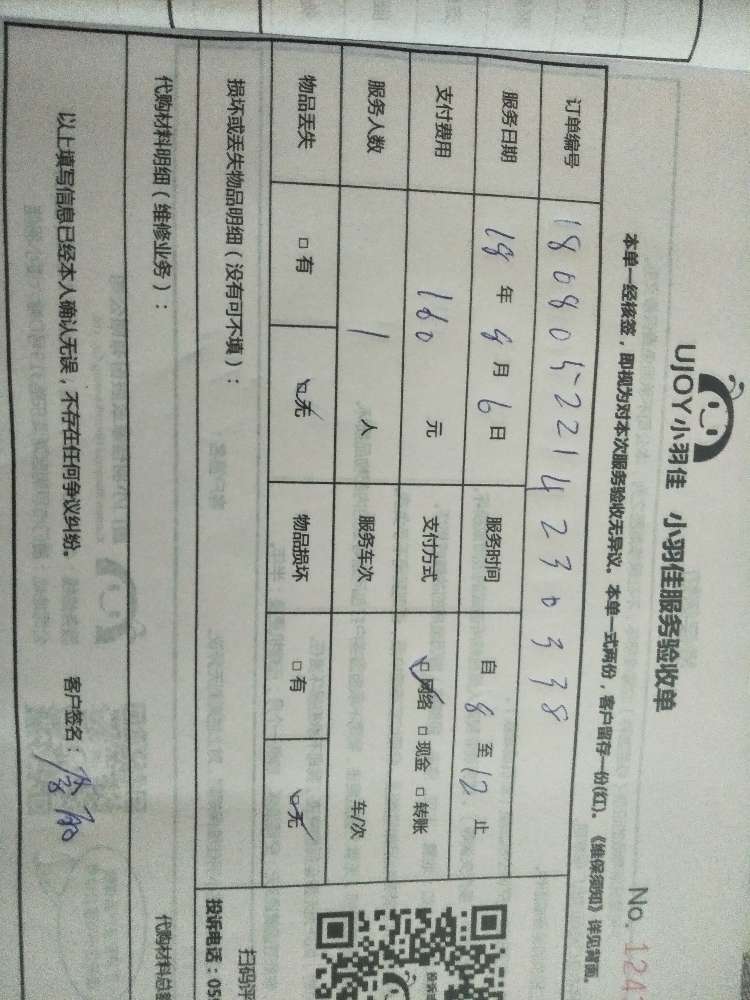 UJOY小羽佳 小羽佳服务验收单
No. 124
本单一经核签，即视为对本次服务验收无异议。本单一式两份，客户留存一份(红)。《维保须知》详见背面。
订单编号 1808052214230338
服务日期 18 年 8 月 6 日 服务时间 自 8 至 12 止
支付费用 160 元 支付方式 ☑网络 □现金 □转账
服务人数 1 人 服务车次 车/次
物品丢失 □有 ☑无 物品损坏 □有 ☑无
损坏或丢失物品明细（没有可不填）：
扫码评
投诉电话：05
代购材料明细（维修业务）： 代购材料总额
以上填写信息已经本人确认无误，不存在任何争议纠纷。 客户签名：